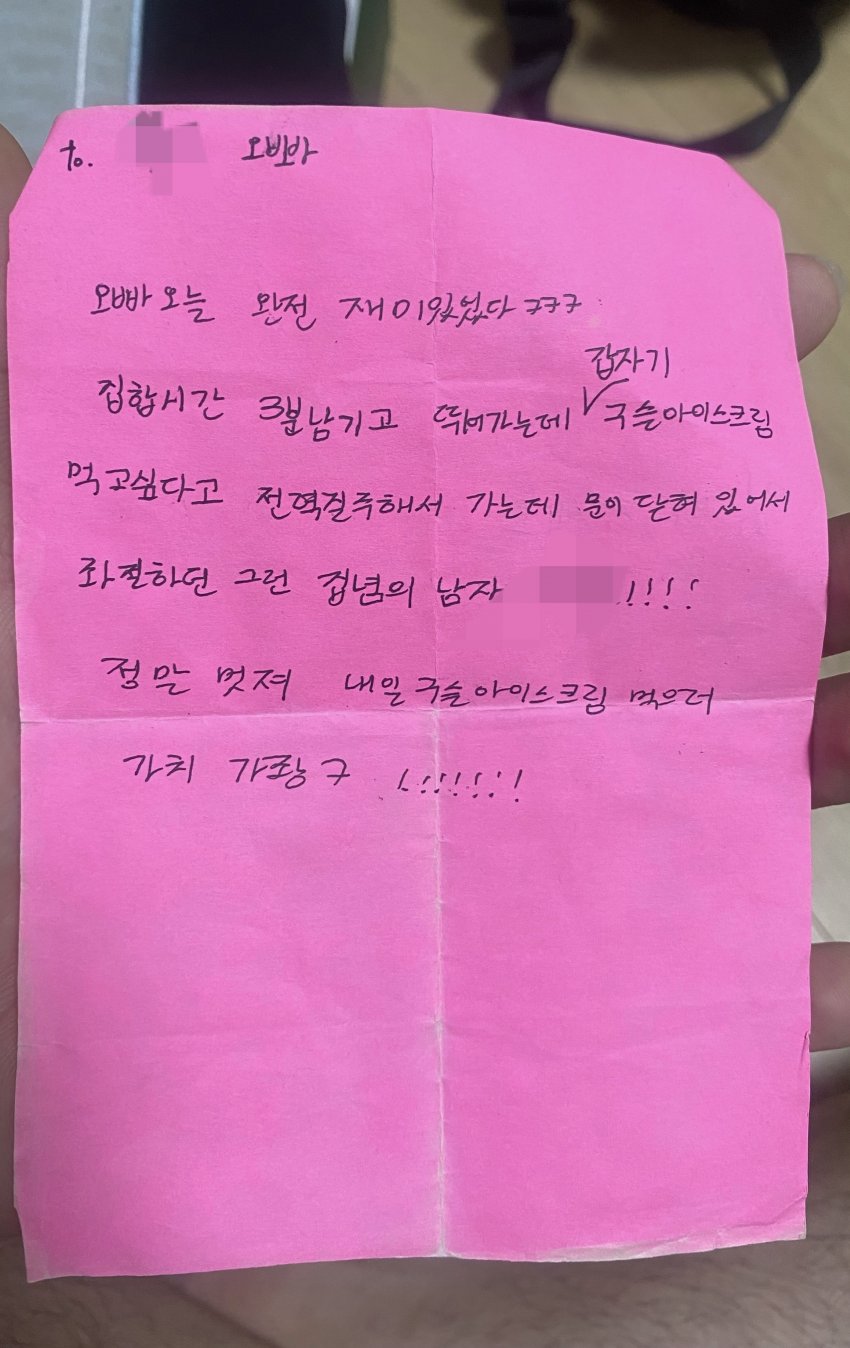 to. 오빠
오빠 오늘 완전 재미있었다 ㅋㅋㅋ
집합시간 3분남기고 뛰어가는데 갑자기 구슬아이스크림
먹고싶다고 전력질주해서 가는데 문이 닫혀 있어서
좌절하던 그런 집념의 남자 !!!!
정말 멋져 내일 구슬아이스크림 먹으러
가치 가좡 ㅋ !!!!!!!